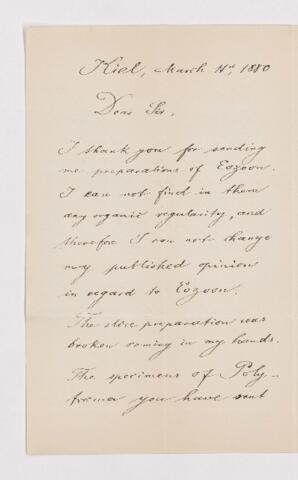 Kiel, March 11st, 1880
Dear Sir,
I thank you for sending
me preparations of Eozoon.
I can not find in them
any organic regularity, and
therefore I can not change
my published opinion
in regard to Eozoon.
The slice preparation was
broken coming in my hands.
The specimens of Poly-
trema you have sent